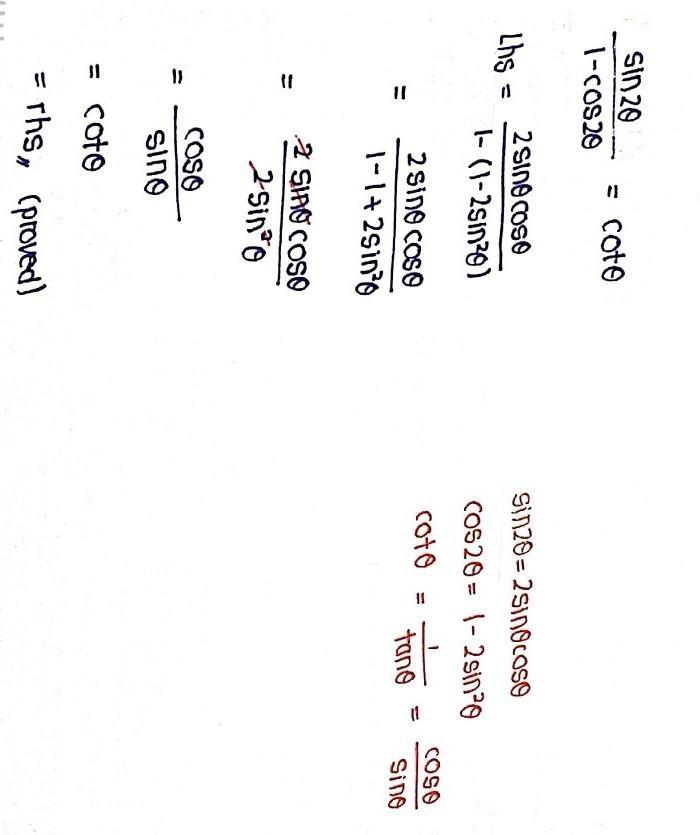 sin2θ / 1-cos2θ = cotθ
Lhs = 2sinθcosθ / 1-(1-2sin²θ)
= 2sinθcosθ / 1-1+2sin²θ
= 2sinθcosθ / 2sin²θ
= cosθ / sinθ
= cotθ
= rhs,, (proved)
sin2θ = 2sinθcosθ
cos2θ = 1-2sin²θ
cotθ = 1/tanθ = cosθ/sinθ